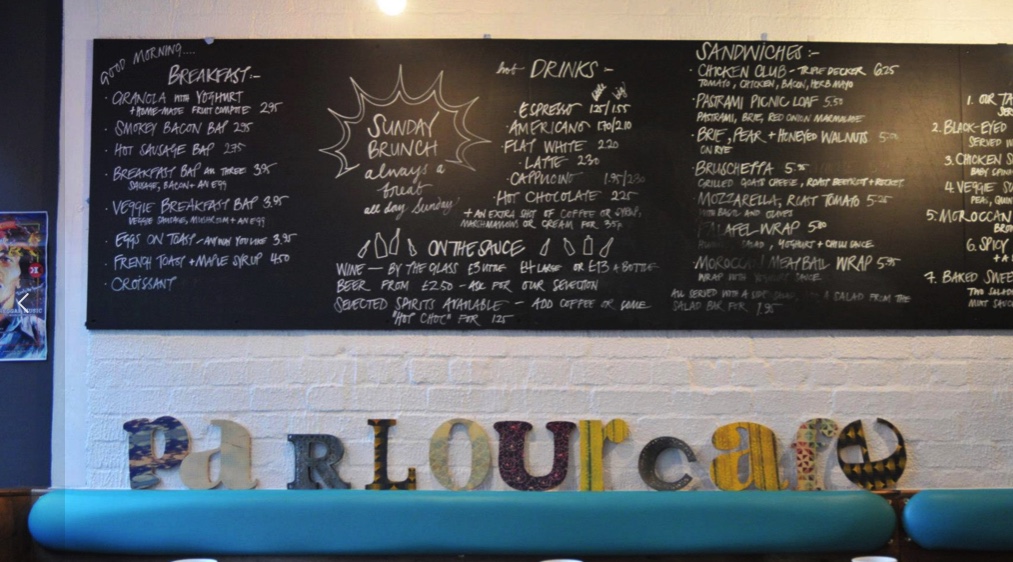 GOOD MORNING....
BREAKFAST:-
· GRANOLA WITH YOGHURT
+ HOME-MADE FRUIT COMPOTE 2.95
· SMOKEY BACON BAP 2.95
· HOT SAUSAGE BAP 2.95
· BREAKFAST BAP ALL THREE 3.95
SAUSAGE, BACON + AN EGG
· VEGGIE BREAKFAST BAP 3.95
VEGGIE SAUSAGE, MUSHROOM + AN EGG
· EGGS ON TOAST - ANYWAY YOU LIKE 3.95
· FRENCH TOAST + MAPLE SYRUP 4.50
· CROISSANT
SUNDAY
BRUNCH
always a
treat
all day Sunday
hot DRINKS :-
· ESPRESSO 1.25/1.55
· AMERICANO 1.70/2.10
· FLAT WHITE 2.20
· LATTE 2.30
· CAPPUCINO 1.95/2.30
· HOT CHOCOLATE 2.25
+ AN EXTRA SHOT OF COFFEE OR SYRUP,
MARSHMALLOWS OR CREAM FOR 35p
ON THE SAUCE
WINE — BY THE GLASS £3 LITTLE £4 LARGE OR £13 A BOTTLE
BEER FROM £2.50 - ASK FOR OUR SELECTION
SELECTED SPIRITS AVAILABLE - ADD COFFEE OR SOME
"HOT CHOC" FOR 1.25
SANDWICHES :-
· CHICKEN CLUB - TRIPLE DECKER 6.25
TOMATO, CHICKEN, BACON, HERB MAYO
· PASTRAMI PICNIC LOAF 5.50
PASTRAMI, BRIE, RED ONION MARMALADE
· BRIE, PEAR + HONEYED WALNUTS
ON RYE
· BRUSCHETTA
GRILLED GOATS CHEESE, ROAST BEETROOT + ROCKET
· MOZZARELLA, ROAST TOMATO
WITH BASIL AND OLIVES
FALAFEL WRAP
SALAD, YOGHURT + CHILLI SAUCE
· MOROCCAN MEATBALL WRAP 5.95
WRAP WITH YOGHURT SAUCE
ALL SERVED WITH A SIDE A SALAD FROM THE
SALAD BAR FOR 1.95
1. OUR TA
SER
2. BLACK-EYED
SERVED W
3. CHICKEN S
BABY SPIN
4. VEGGIE SU
PEAS, QUIN
5. MOROCCAN
BRO
6. SPICY
+ A
7. BAKED SWEE
TWO SALAD
MINT SAUC
paRLOUrcafe